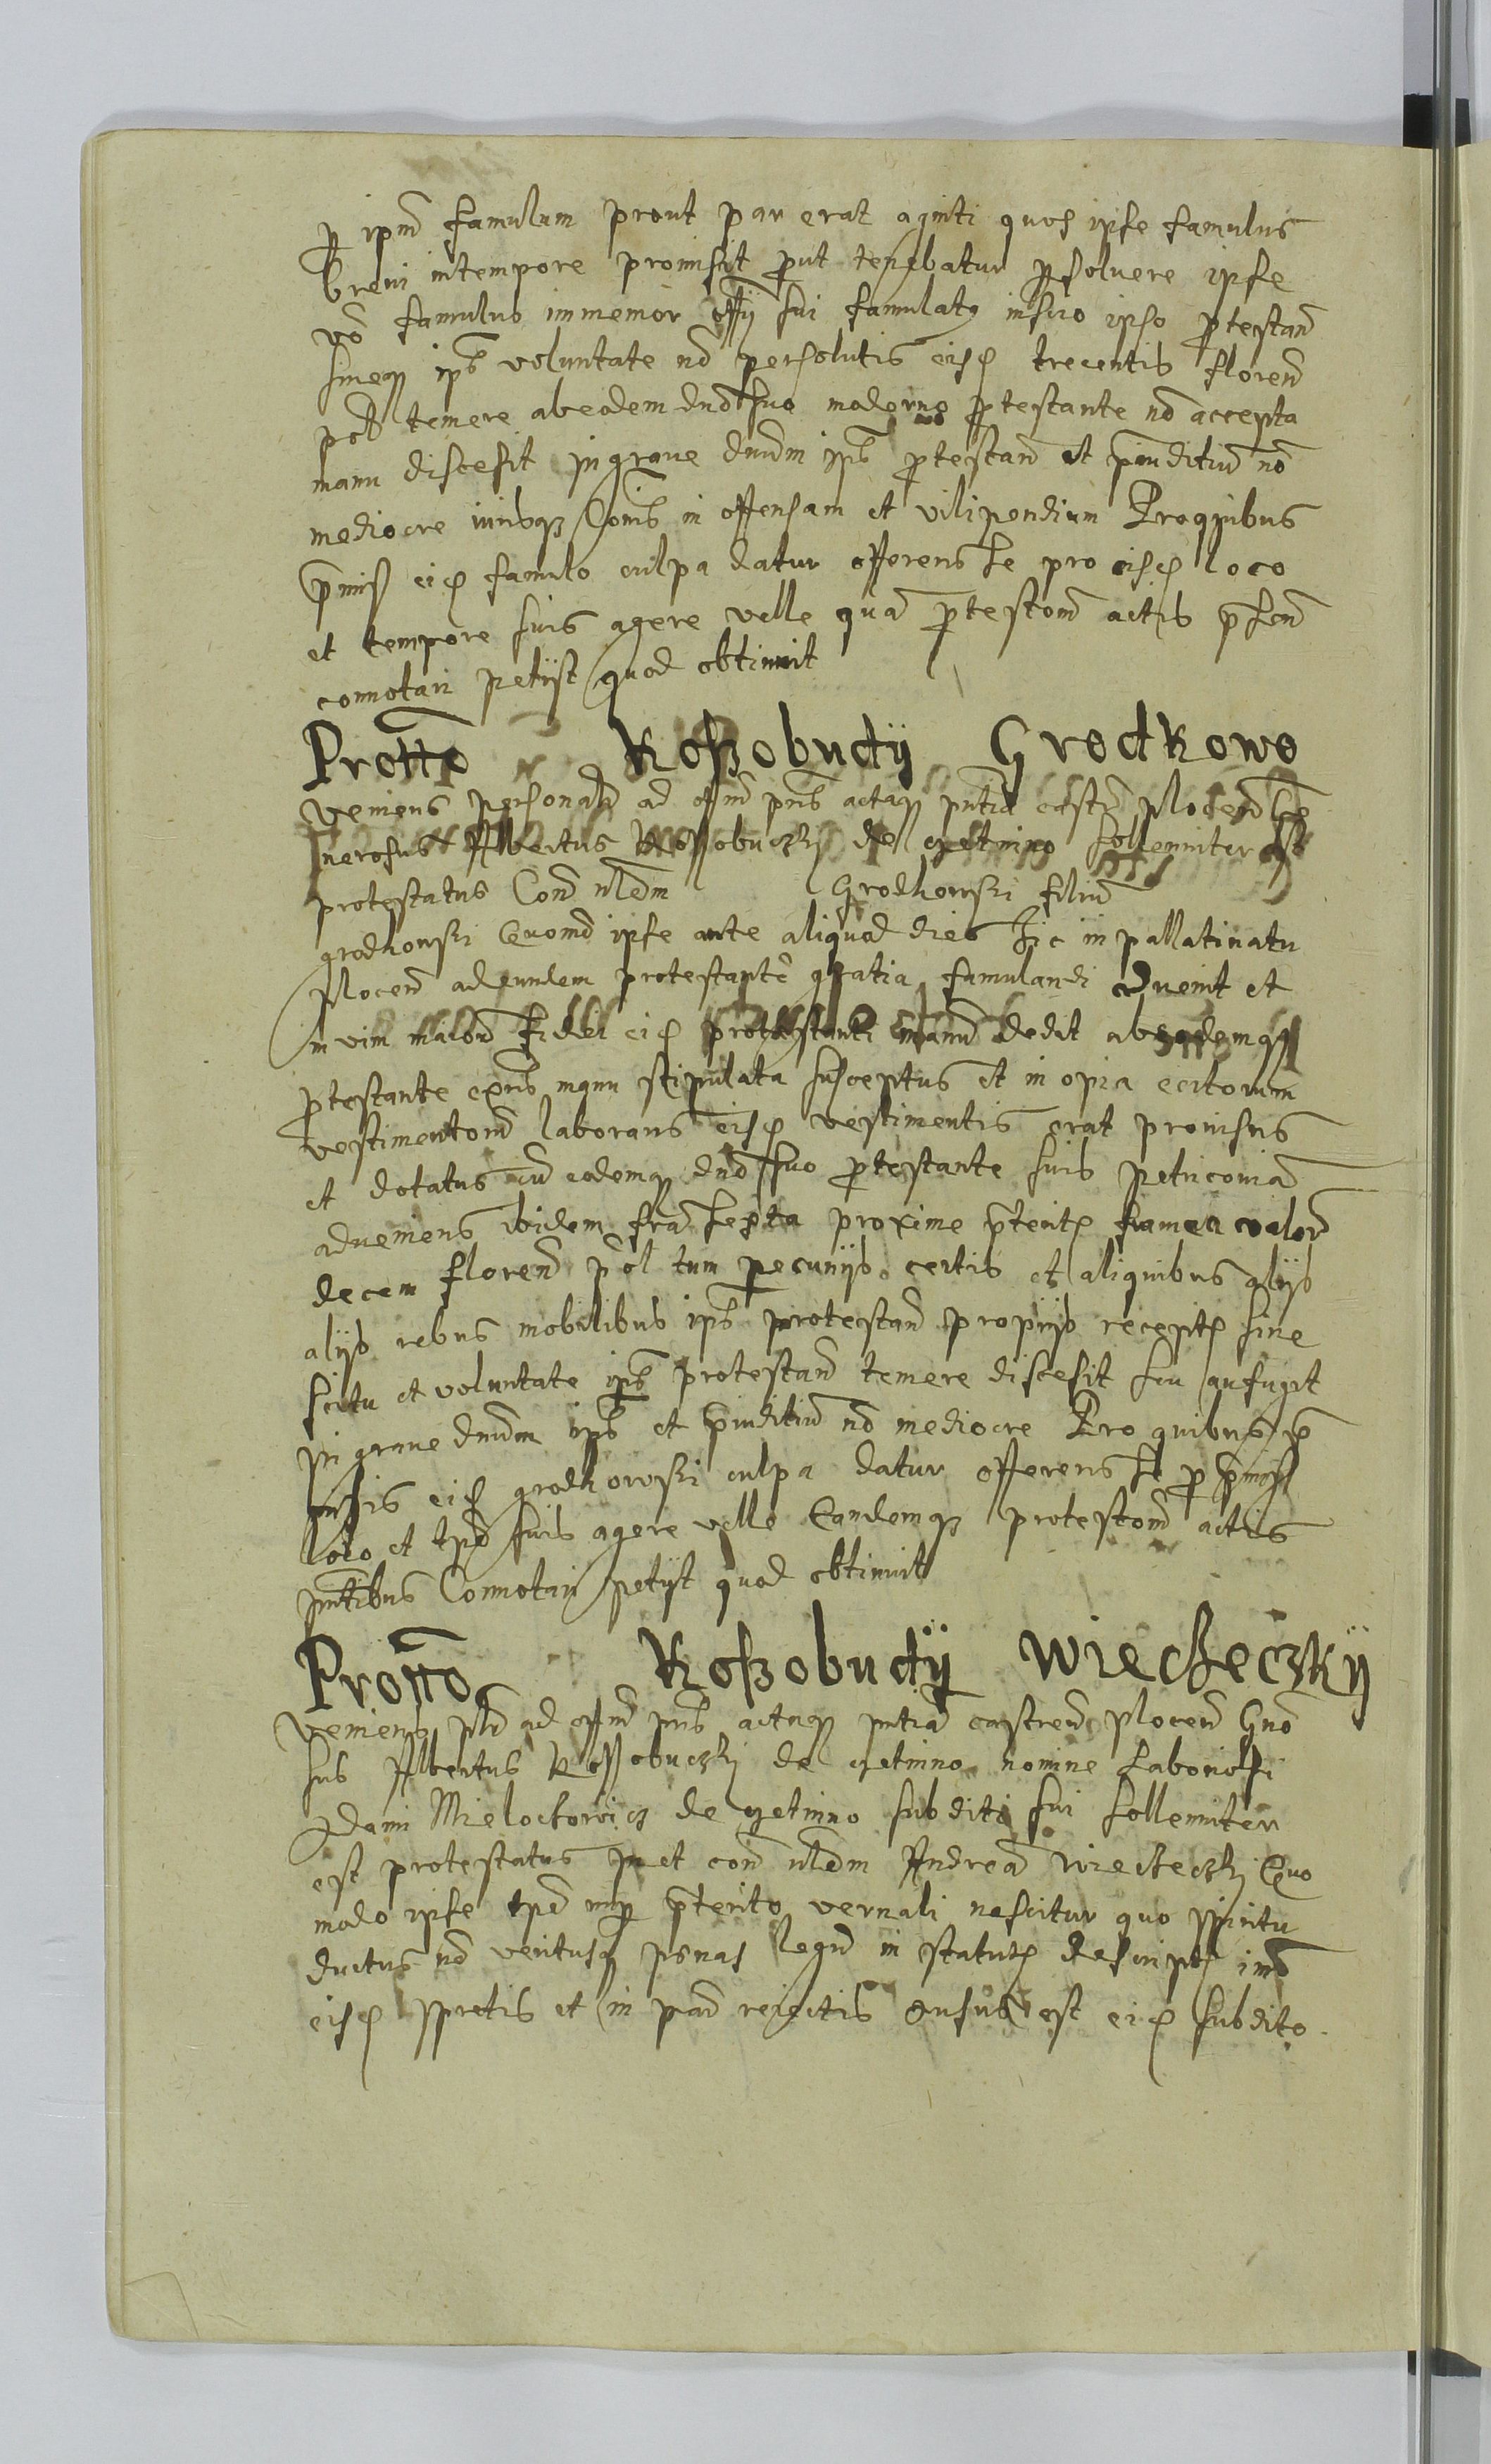 p ipm famulum prout par erat aginti quos ipse famulus
breui intempore promisit prout tenebatur psoluere ipse
vo famulus immemor offy sui famulatq inscio ipso protestan
sineq ips voluntate no persolutis eisd trecentis floren
pol temere abeodem dno suo moderno protestante no accepta
manu discesit in graue dnum ips protestan et preiuditiu no
mediocre iurisq Cois in offensam et vilipendium Proquibus
premiss eid famulo culpa datur offerens se pro eisd loco
et tempore suis agere velle qua protestom actis presen
connotari petyt quod obtinuit
Protto Koßobudÿ Grodkowo
veniens personalr ad offm pns actaq pntia castr plocen Ge
nerosus Albertus Kossobuczki de getnino sollenniter est
protestatus Con nldm Grodkowski filiu
grodkowski Quomo ipse ante aliquod dies hic in pallatinatu
plocen ad eundem protestante gratia famulandi aduenit et
in vim fidei eid protestanti manu dedit ab eodemq
protestante manu stipulata susceptus et in opia certorum
vestimentom laborans eisd vestimentis erat prouisus
et dotatus cu eodemq dno suo protestante suis petricouia
adueniens ibidem fra sexta proxime preterit framea valor
decem floren pol tum pecunijs certis et aliquibus alijs
alijs rebus mobilibus ips protestan proprijs receptis sine
scitu et voluntate ips protestan temere discesit seu aufugit
in graue dnum ips et preiuditiu no mediocre Pro quibus pre
missis eid grodkowski culpa datur offerens se pro premiss
loco et tpe suis agere velle Eandemq protestom actis
pntibus Connotari petyt quod obtinuit
Protto Koßobudÿ Wieczeczkÿ
veniens plr ad offm pns actaq pntia castren plocen Gno
sus Albertus Kossobuczki de getnino nomine laboriosi
Adami de getnino subditi sui sollenniter
est protestatus in et con nldm Andrea Wieczeczki Quo
modo ipse tpe nup preterito vernali nescitur quo spiritu
ductus no veritusq penas legu in statut descript imo
eisd spretis et in reiectis ausus est eid subdito